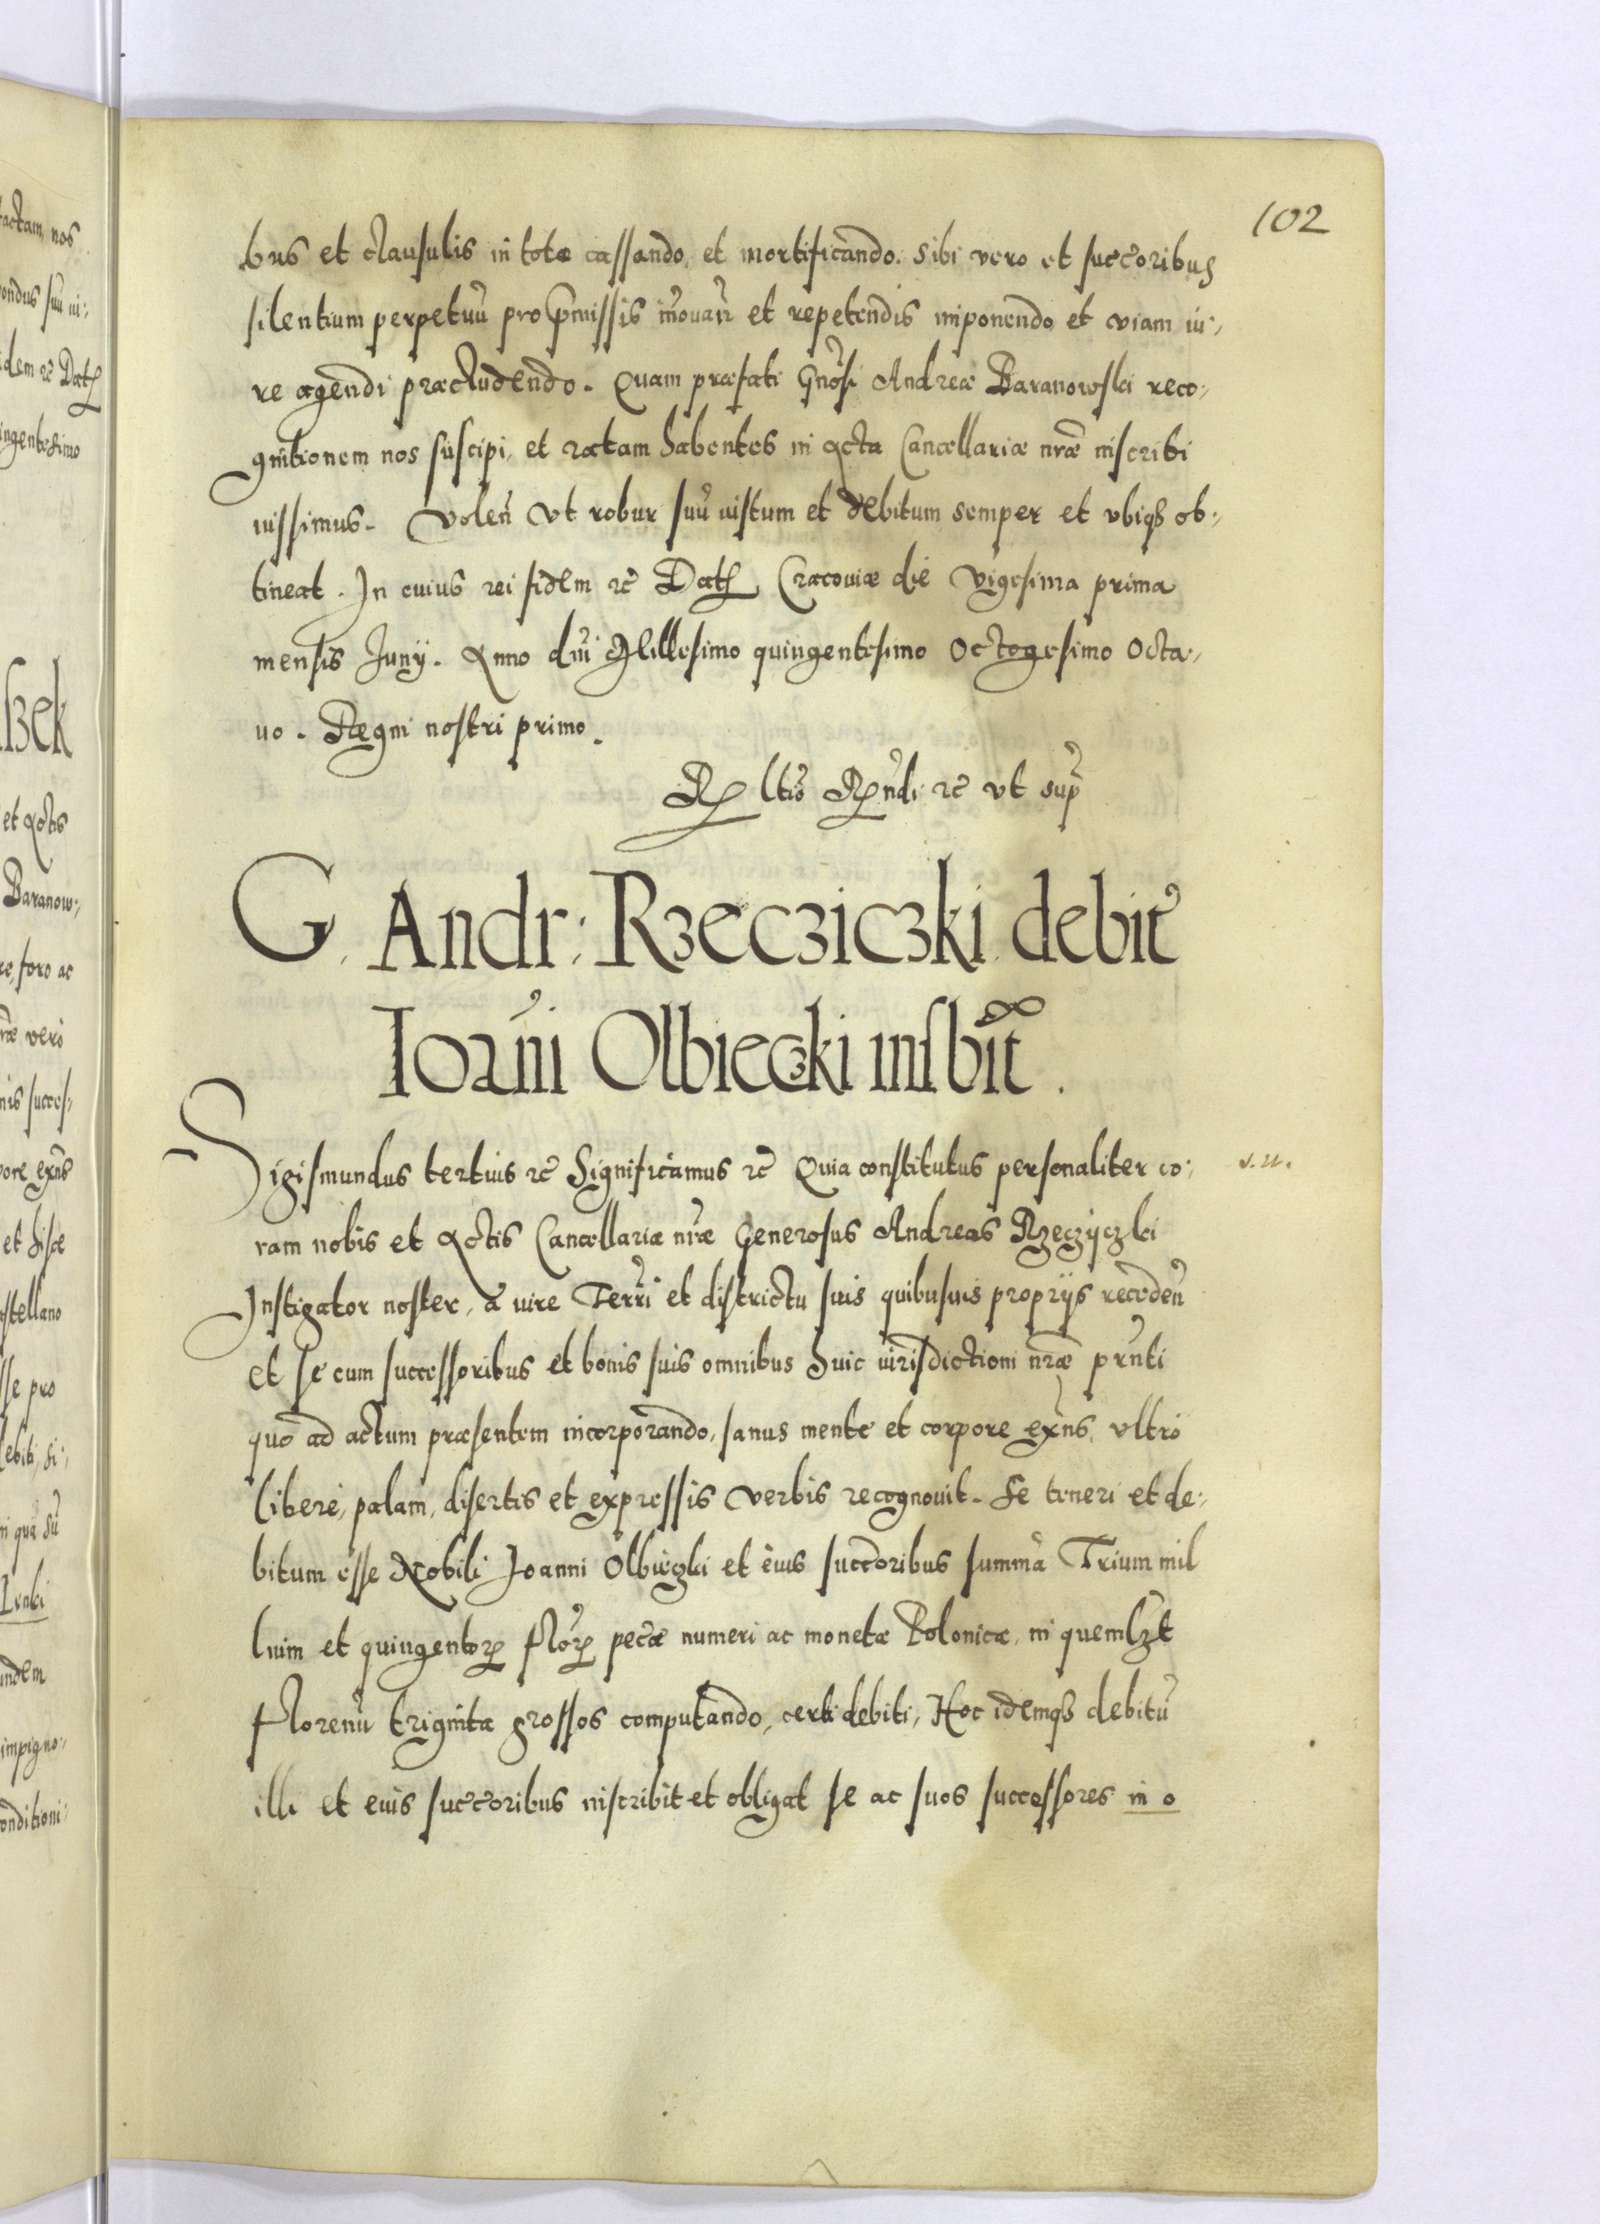 102
bus et clausulis in toto cassando, et mortificando. Sibi vero et succoribus
silentium perpetuũ pro p̃missis mouañ et repetendis imponendo et viam iu:,
re agendi præcludendo. Quam præfati Gnosi Andreæ Baranowski reco,
gnitionem nos suscipi, et ratam habentes in Acta Cancellariæ nræ inscribi
iussimus. Voleñ vt robur suũ iustum et debitum semper et vbiqȝ ob:,
tineat. In cuius rei fidem ꝛc̃ Datꝭ Cracouiæ die Vigesima prima
mensis Junÿ. Anno dñi Millesimo quingentesimo Octogesimo Octa:,
uo. Regni nostri primo.
Rꝑ ltio Rꝑndi ꝛc̃ vt sup̃
G. Andr: Rzecziczki debit̃
Ioañi Olbieczki insbit̃.
Sigismundus tertius ꝛc̃ Significamus ꝛc̃ Quia constitutus personaliter co: v. u.
ram nobis et Actis Cancellariæ nræ Generosus Andreas Rzeczyczki
Instigator noster, a iure Terri et districtu suis quibusuis proprijs recedeñ
et se cum successoribus et bonis suis omnibus huic iurisdictioni nræ prñti
quo ad actum præsentem incorporando, sanus mente et corpore exñs, vltro
libere, palam, disertis et expressis verbis recognouit. Se teneri et de:,
bitum esse Nobili Joanni Olbieczki et eius succoribus summa Trium mil
lium et quingentoꝝ floꝝ pecæ numeri ac monetæ Polonicæ, in quemlȝt
florenũ triginta grossos computando, certi debiti, Hoc idemqȝ debitũ
illi et eius succoribus inscribit et obligat se ac suos successores in o